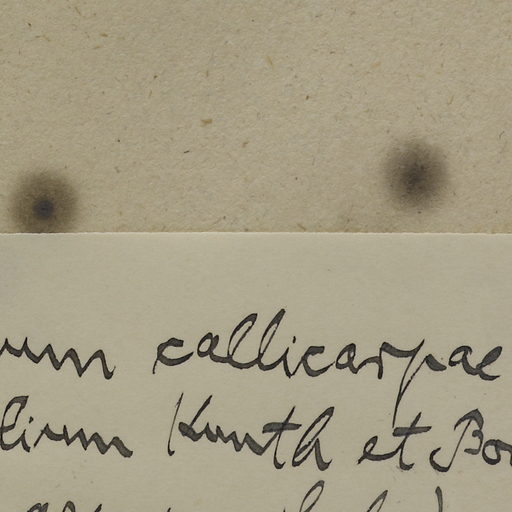 um callicarpae
lium Kunth et Bou